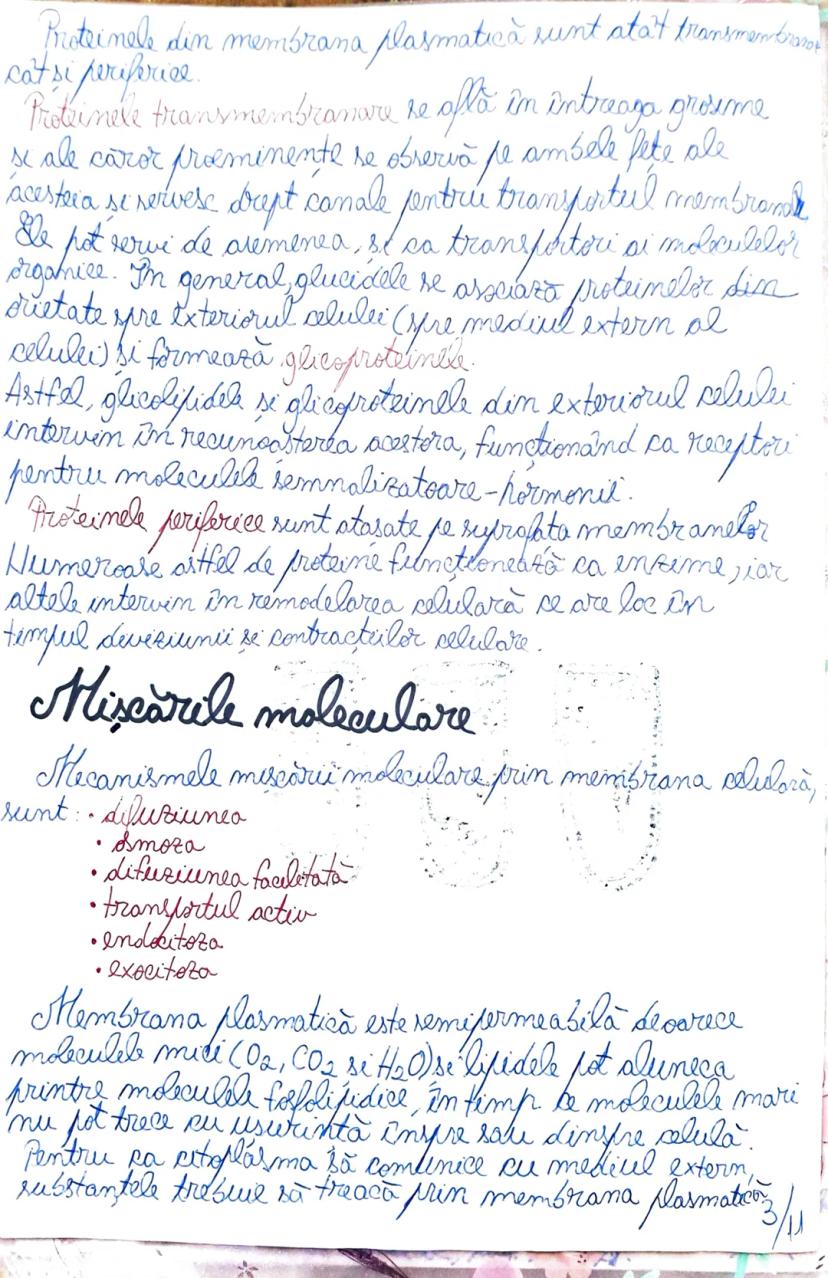 Proteinele din membrana plasmatică sunt atât transmembranare
cât și periferice.
Proteinele transmembranare se află în întreaga grosime
și ale căror proeminențe se observă pe ambele fețe ale
acesteia și servesc drept canale pentru transportul membranal
Ele pot servi de asemenea, și ca transportori ai moleculelor
organice. În general, glucidele se asociază proteinelor din
orietate spre exteriorul celulei (spre mediul extern al
celulei) și formează glicoproteinele.
Astfel, glicolipidele și glicoproteinele din exteriorul celulei
intervin în recunoașterea acestora, funcționând ca receptori
pentru moleculele semnalizatoare-hormonii.
Proteinele periferice sunt atașate pe suprafața membranelor
Numeroase astfel de proteine funcționează ca enzime, iar
altele intervin în remodelarea celulară ce are loc în
timpul deviziunii și contracțiilor celulare.
Mișcările moleculare
Mecanismele mișcării moleculare prin membrana celulară,
sunt: • difuziunea
• osmoza
• difuziunea facilitată
• transportul activ
• endocitoza
• exocitoza
Membrana plasmatică este semipermeabilă deoarece
moleculele mici (O2, CO2 și H2O) și lipidele pot aluneca
printre moleculele fosfolipidice, în timp ce moleculele mari
nu pot trece cu ușurință înspre sau dinspre celulă.
Pentru ca citoplasma să comunice cu mediul extern,
substanțele trebuie să treacă prin membrana plasmatică
3/11